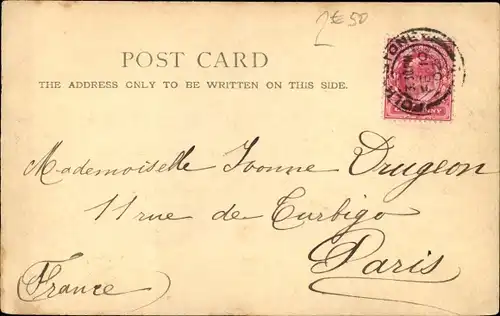 2€50
POST CARD
THE ADDRESS ONLY TO BE WRITTEN ON THIS SIDE.
Mademoiselle Ivonne Drugeon
11 rue de Turbigo
Paris
(France)